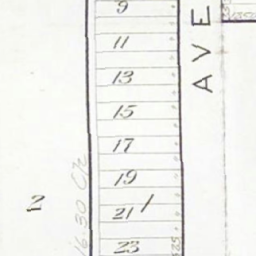 9
11
13
15
17
19
21
23
AVE
16.30
N
25